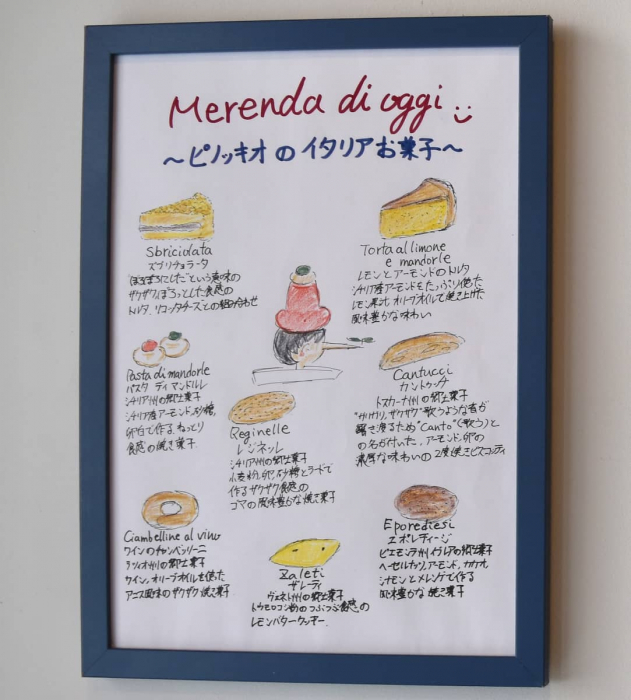 Merenda di oggi
～ピノッキオのイタリアお菓子～
Sbriciolata
ズブリチョラータ
"ぼろぼろにした"という意味の
ザクザク、ぽろっとした食感の
トルタ。リコッタチーズとの組み合わせ
Torta al limone
e mandorle
レモンとアーモンドのトルタ
シチリア産アーモンドをたっぷり使った
レモン果汁、オリーブオイルで焼き上げた
風味豊かな味わい
Pasta di mandorle
パスタ ディ マンドルレ
シチリア州の郷土菓子
シチリア産アーモンド、砂糖、
卵白で作る、ねっとり
食感の焼き菓子
Reginelle
レジネッレ
シチリア州の郷土菓子
小麦粉、卵、砂糖とラードで
作るザクザク食感の
ゴマの風味豊かな焼き菓子
Cantucci
カントゥッチ
トスカーナ州の郷土菓子
"カリカリ、ザクザク"歌うような音が
響き渡るため"Canto"(歌う)と
の名が付いた。アーモンド、卵の
濃厚な味わいの2度焼きビスコッティ
Ciambelline al vino
ワインのチャンベッリーニ
ラツィオ州の郷土菓子
ワイン、オリーブオイルを使った
アニス風味のザクザク焼き菓子
Zaleti
ザレーティ
ヴェネト州の郷土菓子
トウモロコシ粉のつぶつぶ食感の
レモンバタークッキー
Eporediesi
エポレディージ
ピエモンテ州イヴレアの郷土菓子
ヘーゼルナッツ、アーモンド、カカオ、
シナモンとメレンゲで作る
風味豊かな焼き菓子